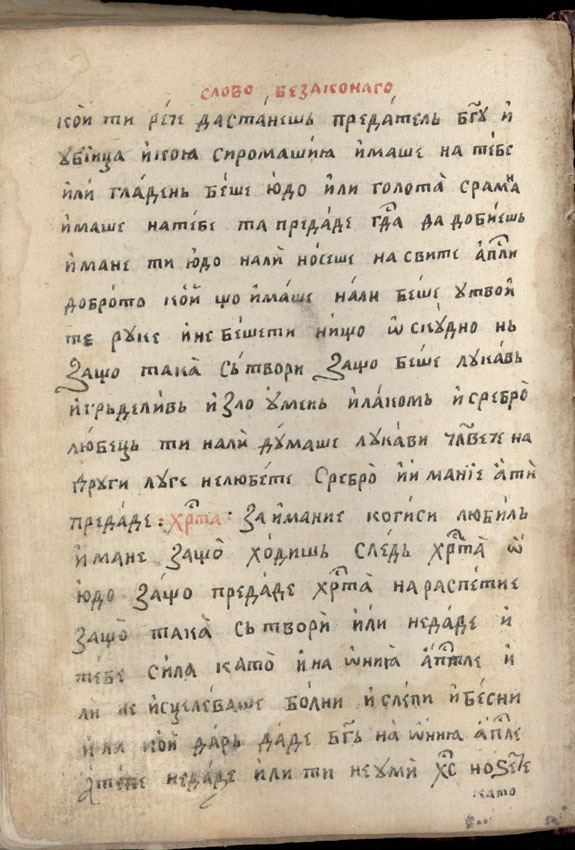 слово безаконаго
кои ти рѐте дастане́шь преда́тель бг҃у и҆
убі́ица и҆коꙗ сиромаши́ꙗ и҆маше на те́бе
или гла́день бе́ше ю҆до или голота̀ срамна
и҆маше нате́бе та преда́де гд҃а да доби́ешь
и҆мане ти ю҆до нали̏ но́сеше на свите а҆пл҃и
добро́то ко́й що и҆ма́ше на́ли беше у твои
те руке и҆не бе́шети нищо ѿ ску́дно нь
Защо така̀ сътвори Защо беше лука́вь
и҆гръдели́вь и҆ зло у҆мень и҆ла́комь и҆ сребро̀
лю́бець ти нали̏ ду́маше лука́ви чл҃вете на
други луге нелюбе́те Сребро̀ и҆имание а҆ти
преда́де : хр҃та : За и҆мание когиси любиль
и҆мане Защо̀ хо́дишь сле́дь хр҃та̀ ѿ
ю҆до За́що преда́де хр҃та̀ на распе́тие
Защо̀ така̀ сьтвори̏ и҆ли неда́де и҆
тебе си́ла като̀ и҆на ѡ҆ниꙗ а҆п҃тле и҆
ли не и҆сцелева́ше бо́лни и҆ сле́пи и҆ бе́сни
и҆ли кой да́рь да́де бг҃ь на ѡ҆ниꙗ а҆п҃ле
а҆тебе неда́де и҆ли ти неуми̏ хс҃ но
като